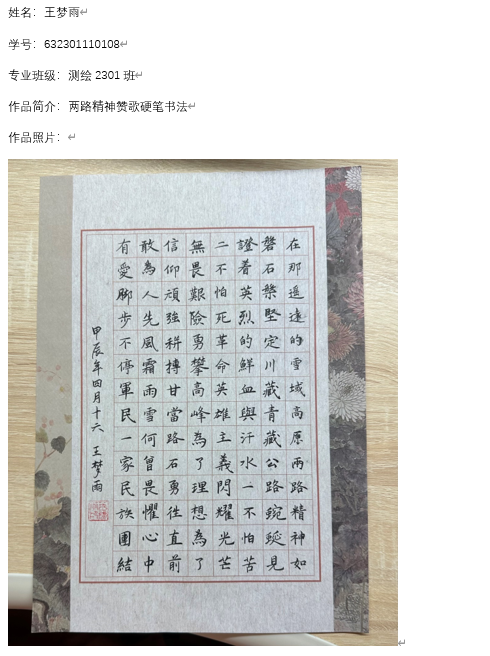 姓名：王梦雨
学号：632301110108
专业班级：测绘 2301 班
作品简介：两路精神赞歌硬笔书法
作品照片：
在那遥遠的雪域高原兩路精神如
磐石槃堅定川藏青藏公路蜿蜒見
證着英烈的鮮血與汗水一不怕苦
二不怕死革命英雄主義閃耀光芒
無畏艱險勇攀高峰為了理想為了
信仰頑強拼摶甘當路石勇往直前
敢為人先風霜雨雪何曾畏懼心中
有愛脚步不停軍民一家民族團結
甲辰年四月十六 王梦雨